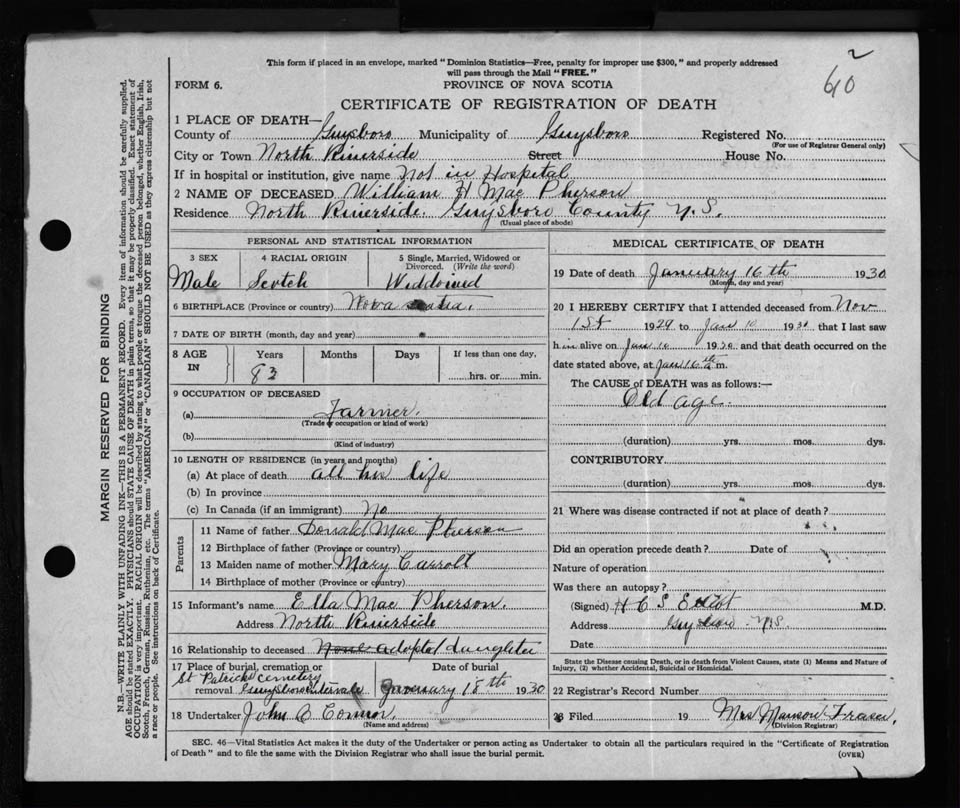 2
60
This form if placed in an envelope, marked "Dominion Statistics—Free, penalty for improper use $300," and properly addressed
will pass through the Mail "FREE."
FORM 6.
PROVINCE OF NOVA SCOTIA
CERTIFICATE OF REGISTRATION OF DEATH
1 PLACE OF DEATH—
County of Guysboro Municipality of Guysboro Registered No.
(For use of Registrar General only)
City or Town North Riverside Street House No.
If in hospital or institution, give name Not in Hospital
2 NAME OF DECEASED William H Mac Pherson
Residence North Riverside. Guysboro County N.S.
(Usual place of abode)
PERSONAL AND STATISTICAL INFORMATION
3 SEX 4 RACIAL ORIGIN 5 Single, Married, Widowed or
Divorced. (Write the word)
Male Scotch Widdowed
6 BIRTHPLACE (Province or country) Nova Scotia.
7 DATE OF BIRTH (month, day and year)
8 AGE IN Years Months Days If less than one day,
83 hrs. or min.
9 OCCUPATION OF DECEASED
(a) Farmer.
(Trade or occupation or kind of work)
(b)
(Kind of industry)
10 LENGTH OF RESIDENCE (in years and months)
(a) At place of death all his life
(b) In province
(c) In Canada (if an immigrant) No
Parents
11 Name of father Donald Mac Pherson
12 Birthplace of father (Province or country)
13 Maiden name of mother Mary Carroll
14 Birthplace of mother (Province or country)
15 Informant's name Ella Mac Pherson.
Address North Riverside
16 Relationship to deceased None adopted daughter
17 Place of burial, cremation or removal Date of burial
St Patricks cemetery
Guysboro Intervale January 18th 1930
18 Undertaker John B Connor.
(Name and address)
MEDICAL CERTIFICATE OF DEATH
19 Date of death January 16th 1930
(Month, day and year)
20 I HEREBY CERTIFY that I attended deceased from Nov
1st 1929 to Jan 10 1930 that I last saw
h im alive on Jan 10 1930 and that death occurred on the
date stated above, at Jan 16th m.
The CAUSE of DEATH was as follows:—
Old age.
(duration) yrs. mos. dys.
CONTRIBUTORY
(duration) yrs. mos. dys.
21 Where was disease contracted if not at place of death?
Did an operation precede death? Date of
Nature of operation
Was there an autopsy?
(Signed) H C S Elliot M.D.
Address Guysboro N.S.
Date
State the Disease causing Death, or in death from Violent Causes, state (1) Means and Nature of
Injury, (2) whether Accidental, Suicidal or Homicidal.
22 Registrar's Record Number
23 Filed 19 Mrs Manson Fraser.
(Division Registrar)
SEC. 46—Vital Statistics Act makes it the duty of the Undertaker or person acting as Undertaker to obtain all the particulars required in the "Certificate of Registration
of Death" and to file the same with the Division Registrar who shall issue the burial permit.
(OVER)
MARGIN RESERVED FOR BINDING
N.B.—WRITE PLAINLY WITH UNFADING INK—THIS IS A PERMANENT RECORD. Every item of information should be carefully supplied.
AGE should be stated EXACTLY. PHYSICIANS should STATE CAUSE OF DEATH in plain terms, so that it may be properly classified. Exact statement of
OCCUPATION is very important. RACIAL ORIGIN will be described by stating to what people or tongue the deceased person belonged, whether English, Irish,
Scotch, French, German, Russian, Ruthenian, etc. The terms "AMERICAN" or "CANADIAN" SHOULD NOT BE USED as they express citizenship but not
a race or people. See instructions on back of Certificate.